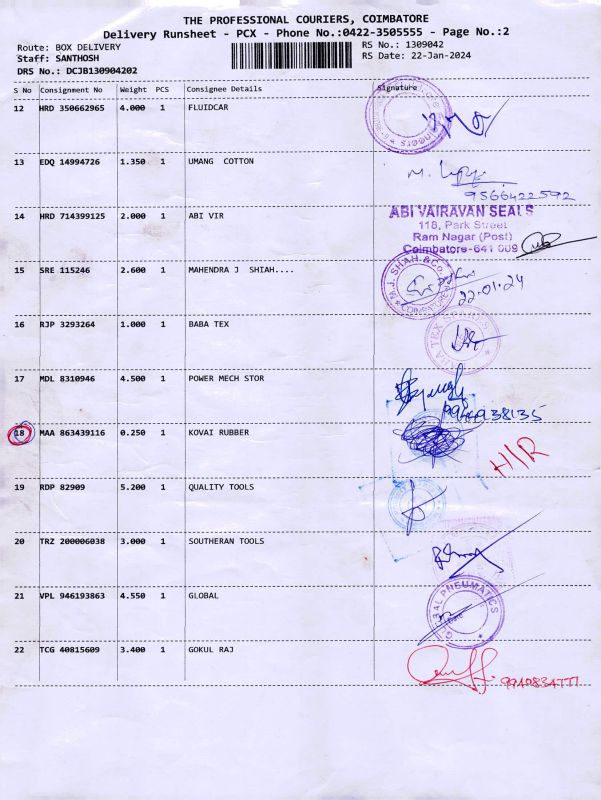 THE PROFESSIONAL COURIERS, COIMBATORE
Delivery Runsheet - PCX - Phone No.:0422-3505555 - Page No.:2
Route: BOX DELIVERY RS No.: 1309042
Staff: SANTHOSH RS Date: 22-Jan-2024
DRS No.: DCJB130904202
S No Consignment No Weight PCS Consignee Details Signature
12 HRD 350662965 4.000 1 FLUIDCAR
13 EDQ 14994726 1.350 1 UMANG COTTON
9566422592
14 HRD 714399125 2.000 1 ABI VIR
ABI VAIRAVAN SEALS
118, Park Street
Ram Nagar (Post)
Coimbatore-641 009
15 SRE 115246 2.600 1 MAHENDRA J SHIAH....
M.J. SHAH & Co.
COIMBATORE
22.01.24
16 RJP 3293264 1.000 1 BABA TEX
17 MDL 8310946 4.500 1 POWER MECH STOR
18 MAA 863439116 0.250 1 KOVAI RUBBER
H/R
19 RDP 82909 5.200 1 QUALITY TOOLS
20 TRZ 200006038 3.000 1 SOUTHERAN TOOLS
21 VPL 946193863 4.550 1 GLOBAL
GLOBAL PNEUMATICS
22 TCG 40815609 3.400 1 GOKUL RAJ